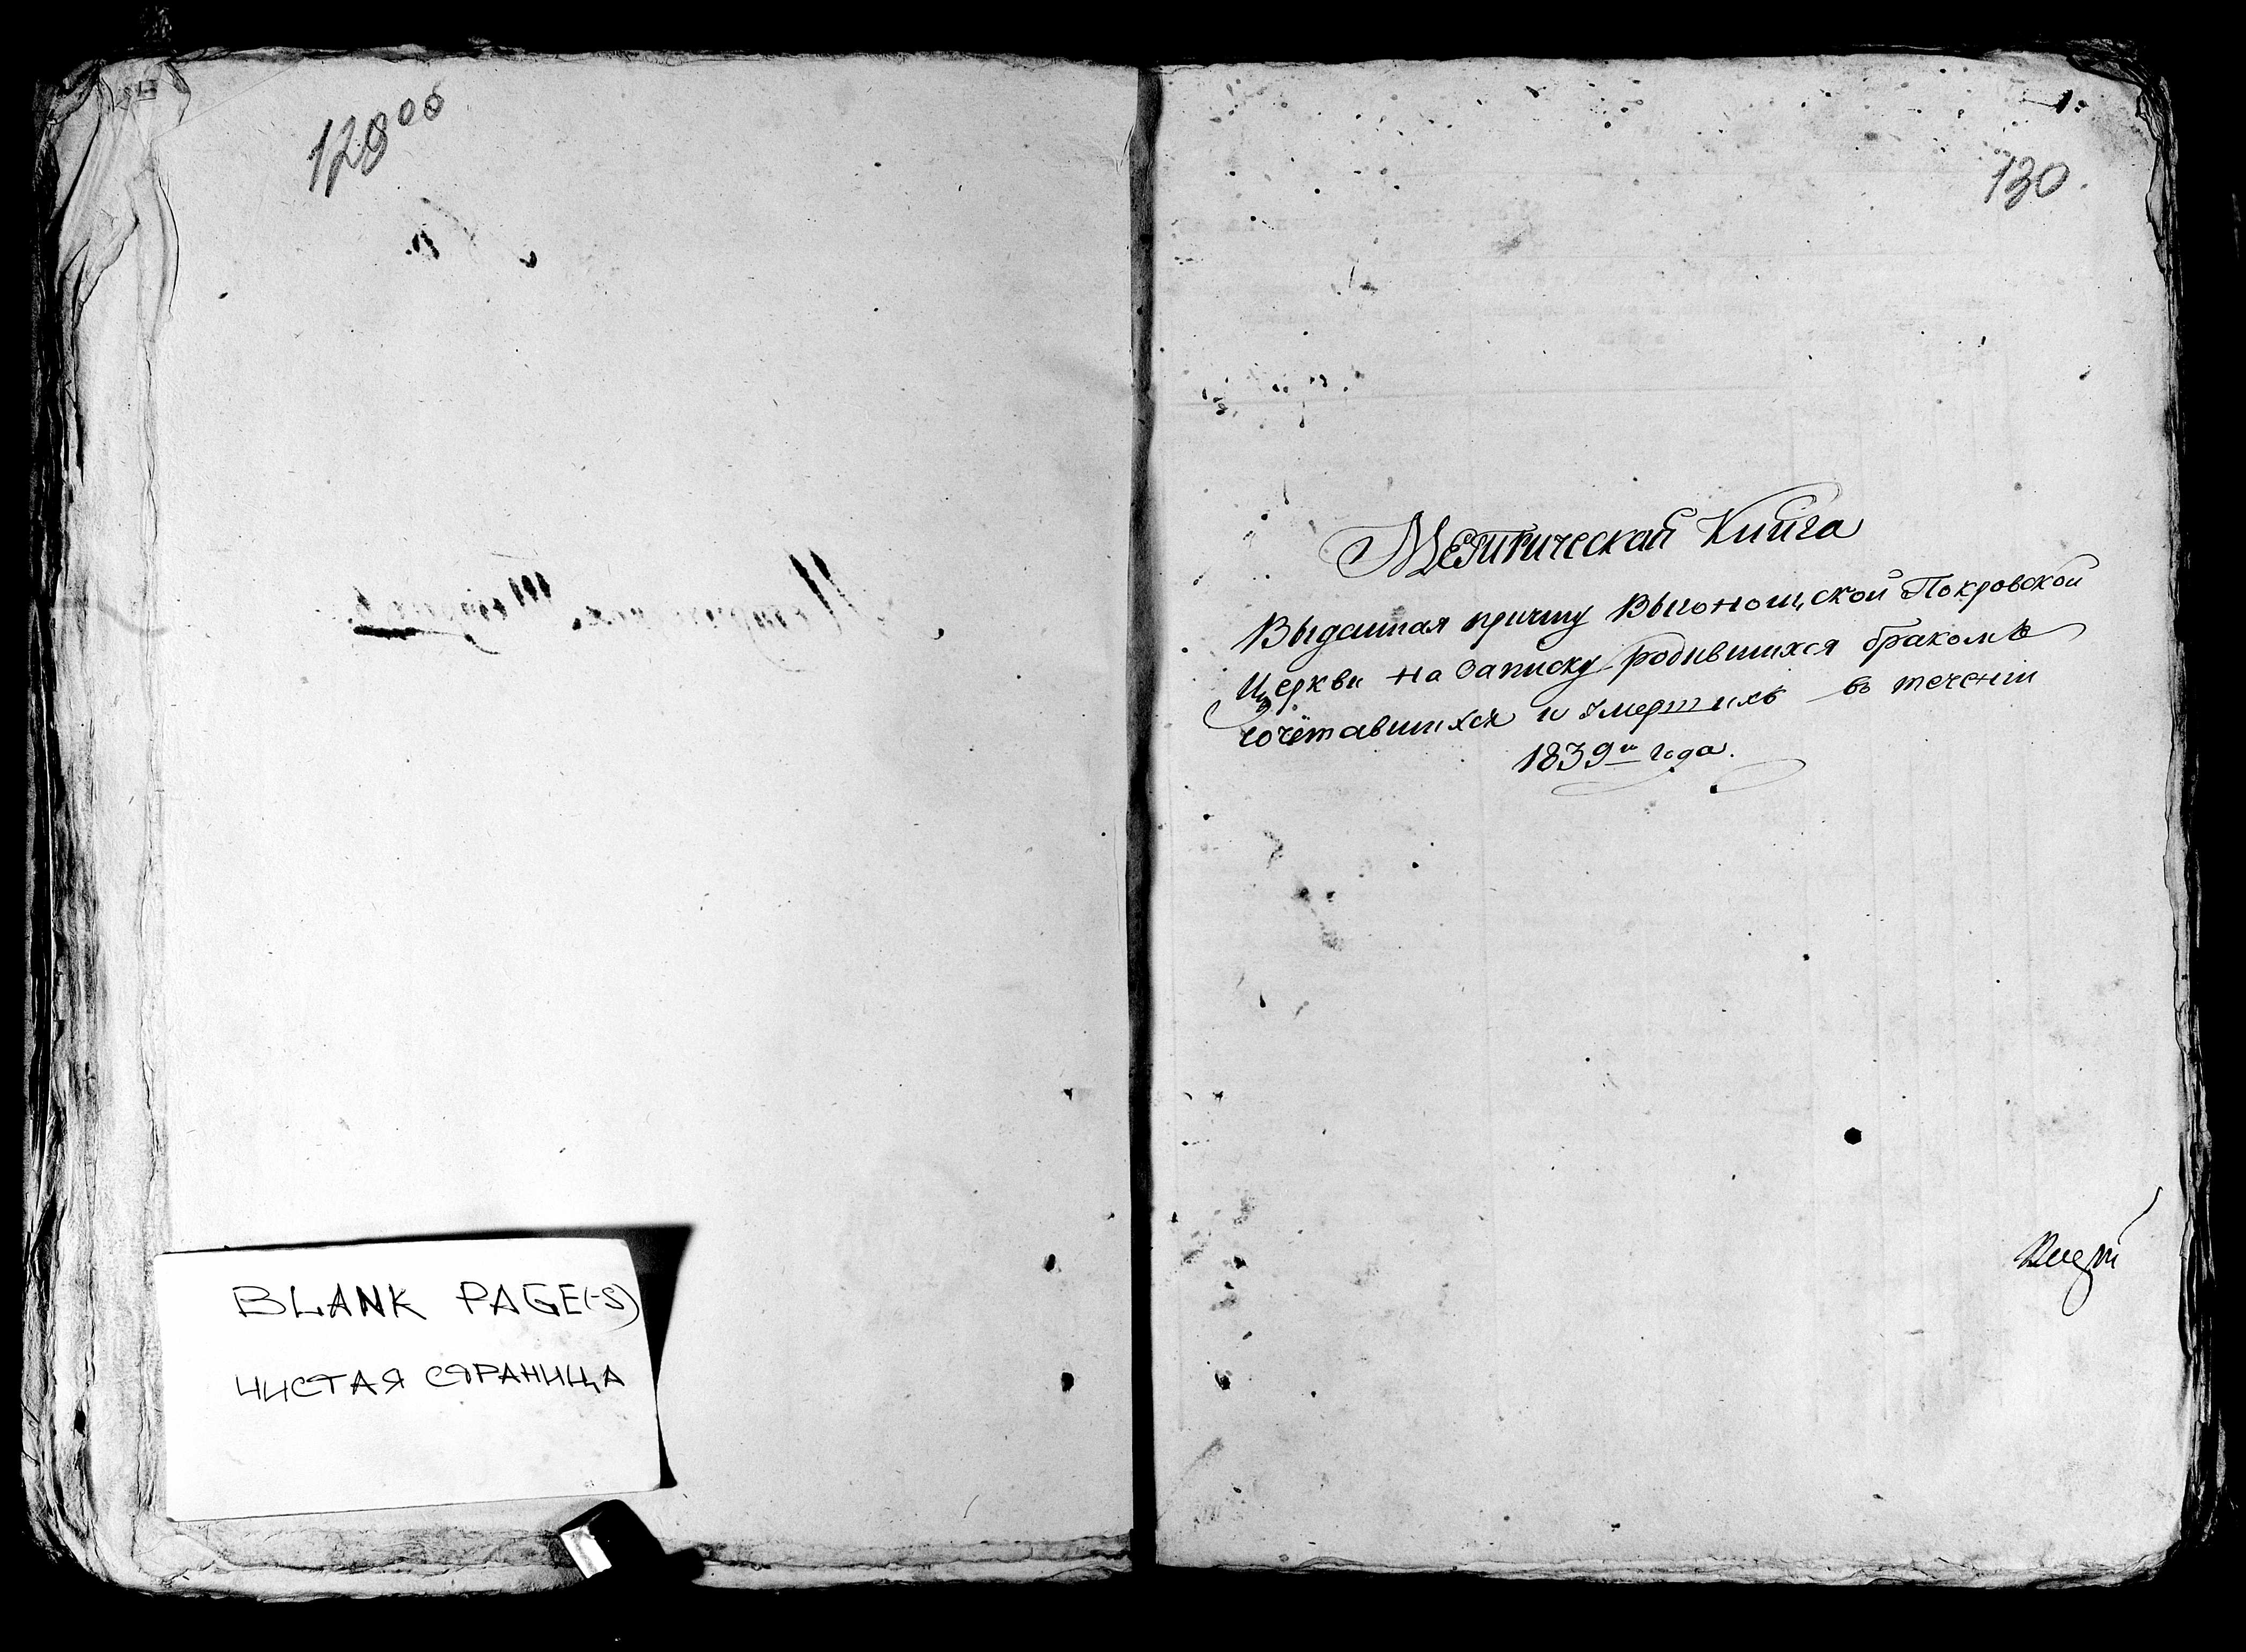 129об
BLANK PAGE(-S)
ЧИСТАЯ СТРАНИЦА
1.
130.
Метрическая Книга
Выданная причту Выгонощской Покровской
Церкви на Записку родившихся бракомъ
сочетавшихся и умершихъ въ теченіи
1839го года.